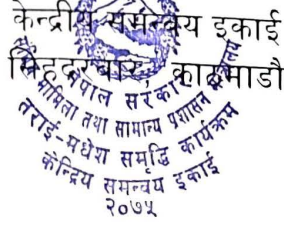 केन्द्रीय समन्वय इकाई
सिंहदरबार, काठमाडौं
नेपाल सरकार
मामिला तथा सामान्य प्रशासन मन्त्रालय
तराई-मधेश समृद्धि कार्यक्रम
केन्द्रिय समन्वय इकाई
२०७५